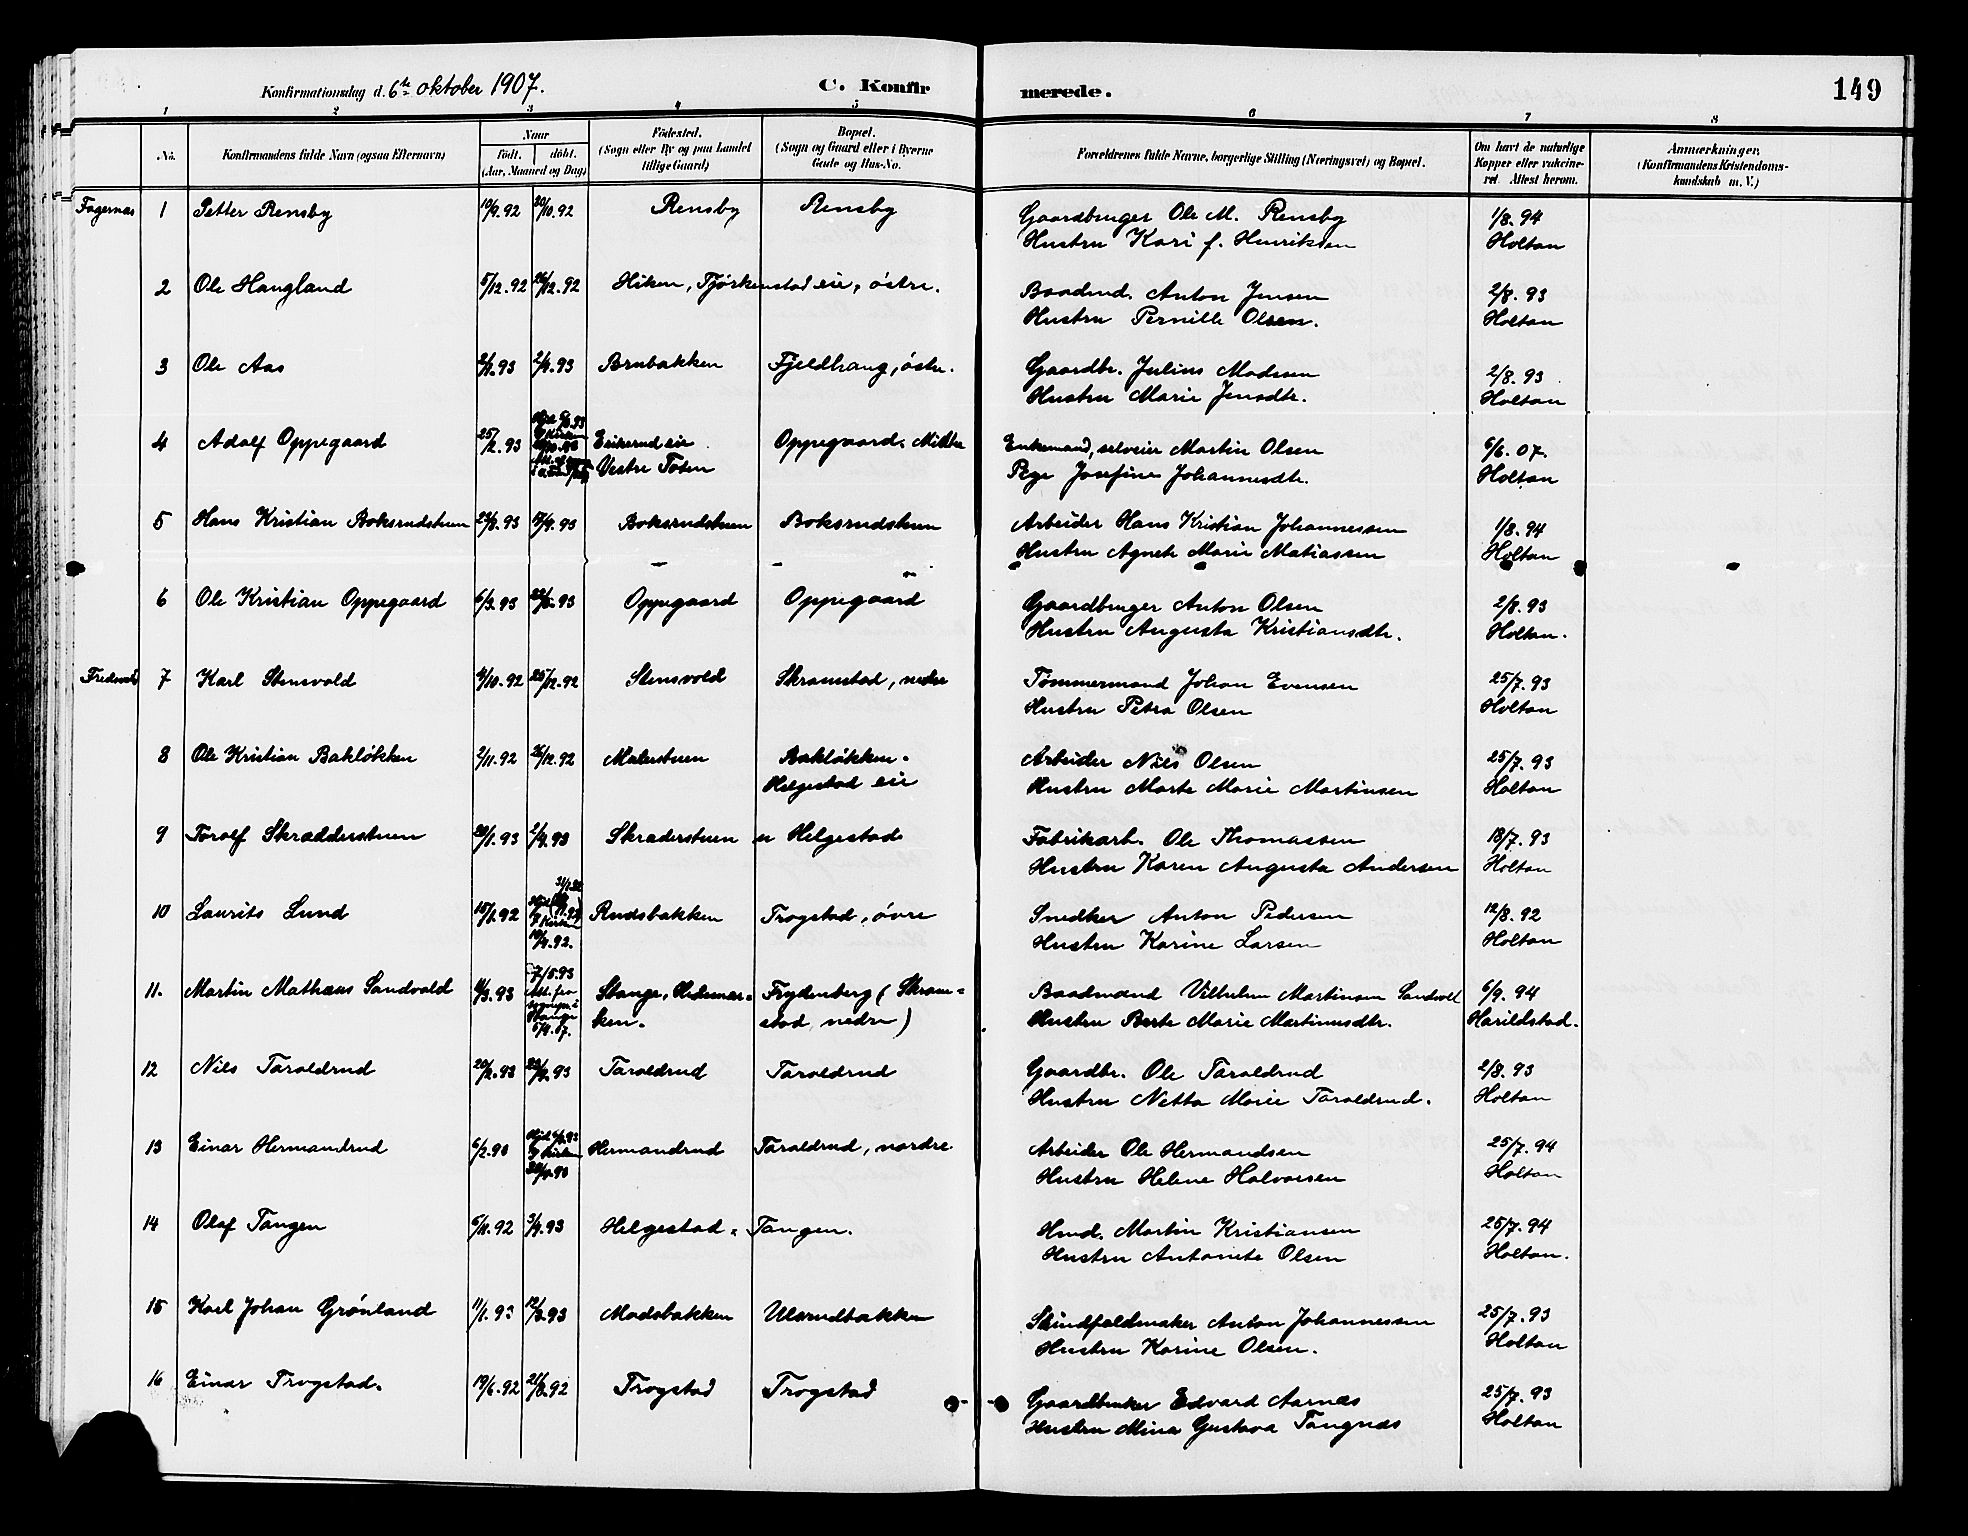 Konfirmationsdag d. 6te oktober 1907.
C. Konfirmerede.
149
1 2 3 4 5 6 7 8
No.
Konfirmandens fulde Navn (ogsaa Efternavn)
Naar
født. | døbt.
(Aar, Maaned og Dag)
Fødested.
(Sogn eller By og paa Landet
tillige Gaard)
Bopæl.
(Sogn og Gaard eller i Byerne
Gade og Hus-No.
Forældrenes fulde Navne, borgerlige Stilling (Næringsvei) og Bopæl.
Om havt de naturlige
Kopper eller vakcine-
ret. Attest herom.
Anmærkninger,
(Konfirmandens Kristendoms-
kundskab m. V.)
Fagernæs 1 Petter Rensby 19/9.92 30/10.92 Rensby Rensby Gaardbruger Ole M. Rensby 1/8.94
Hustru Kari f. Henriksen Holtan
2 Ole Haugland 5/12.92 26/12.92 Hiken, Fjørkenstad eie, østre. Baadmd. Anton Jensen 2/8.93
Hustru Pernille Olsen. Holtan
3 Ole Aas 2/4.93 Brubakken Fjeldhaug, østre. Gaardbr. Julius Madssen 2/8.93
Hustru Marie Jensdtr. Holtan
4 Adolf Oppegaard 25/2.93 Eriksrud eie Oppegaard. Midtre Enkemand, selveier Martin Olsen 6/6.07
Vestre Toten Pige Josefine Johannesdtr. Holtan
5 Hans Kristian Boksrudstuen 17/9.93 Boksrudstuen Boksrudstuen Arbeider Hans Kristian Johannessen 1/8.94
Hustru Agnete Marie Matiassen Holtan
6 Ole Kristian Oppegaard 6/3.93 Oppegaard Oppegaard Gaardbruger Anton Olsen 2/8.93
Hustru Augusta Kristiansdtr. Holtan.
7 Karl Stensvold 25/12.92 Stensvold Skramstad, nedre Tømmermand Johan Evensen 25/7.93
Hustru Petra Olsen Holtan
8 Ole Kristian Bakløkken 2/11.92 26/12.92 Malerstuen Bakløkken. Arbeider Nils Olsen 25/7.93
Helgestad eie Hustru Marte Marie Martinsen Holtan
9 Torolf Skrædderstuen 20/1.93 2/4.93 Skræderstuen u Helgestad Fabrikarb. Ole Thomassen 18/7.93
Hustru Karen Augusta Andersen Holtan
10 Laurits Lund Rudsbakken Trogstad, øvre Snedker Anton Pedersen 12/8.92
Hustru Karine Larsen Holtan
11. Martin Mathæus Sandvold 7/5.93 Stange, Hedemar- Frydenberg (Skram- Baadmand Vilhelm Martinsen Sandvold 6/9.94
ken. stad nedre) Hustru Berte Marie Martinusdtr. Harildstad.
12 Nils Taroldrud 20/2.93 Taroldrud Taroldrud Gaardbr. Ole Taroldrud 2/8.93
Hustru Netta Marie Taroldrud. Holtan
13 Einar Hermandrud 6/2.93 Hermandrud Taroldrud, nordre Arbeider Ole Hermandsen 25/7.94
Hustru Helene Halvorsen Holtan
14 Olaf Tangen 6/11.92 3/4.93 Helgestad - Tangen. Hmd. Martin Kristiansen 25/7.94
Hustru Antonete Olsen Holtan.
15 Karl Johan Grönland 11/1.93 12/3.93 Madsbakken Ulsrudbakken Skindfeldmaker Anton Johannessen 25/7.93
Hustru Karine Olsen. Holtan
16 Einar Trogstad. 19/6.92 21/8.92 Trogstad Trogstad Gaardbruker Edvard Aarnæs 25/7.93
Hustru Mina Gustava Tangnæs Holtan